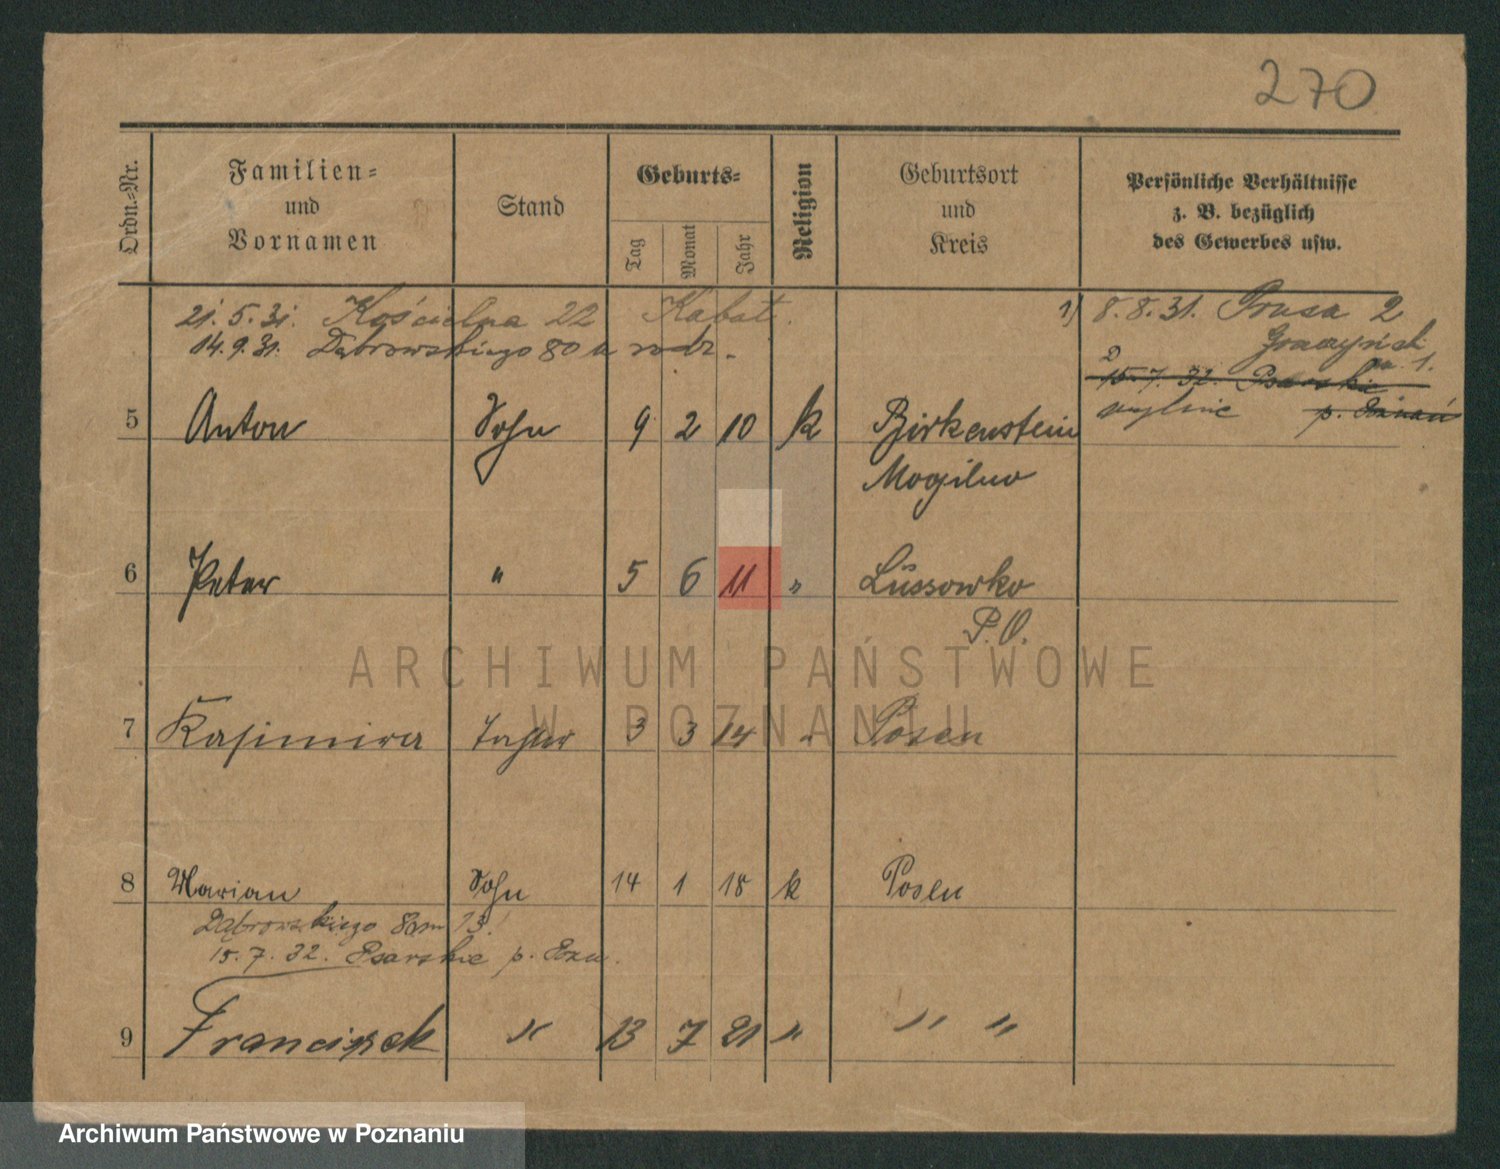 270
Ordn.-Nr.
Familien-
und
Vornamen
Stand
Geburts-
Tag
Monat
Jahr
Religion
Geburtsort
und
Kreis
Persönliche Verhältnisse
z. B. bezüglich
des Gewerbes usw.
21. 5. 31. Kościelna 22 Kabat.
14. 9. 31. Dąbrowskiego 80 u rodz.
8. 8. 31. Prusa 2
m. 1.
15. 7. 32. Psarskie
mylnie p. Poznań
5 Anton Sohn 9 2 10 k Birkenstein
Mogilno
6 Peter " 5 6 11 " Lussowko
P. O.
7 Kasimira Tochter 3 3 14 " Posen
8 Marian Sohn 14 1 18 k Posen
Dąbrowskiego 80 m 13.
15. 7. 32. Psarskie p. Pozn.
9 Franciszek " 13 7 21 " " "
ARCHIWUM PAŃSTWOWE
W POZNANIU
Archiwum Państwowe w Poznaniu